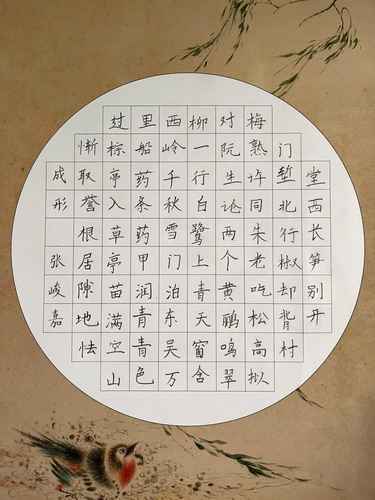 堂西长笋别开
门堑北行椒却背村
梅熟许同朱老吃松高拟
对阮生论两个黄鹂鸣翠
柳一行白鹭上青天窗含
西岭千秋雪门泊东吴万
里船药条药甲润青青色
过棕亭入草亭苗满空山
惭取誉根居隙地怯
成形 张峻嘉